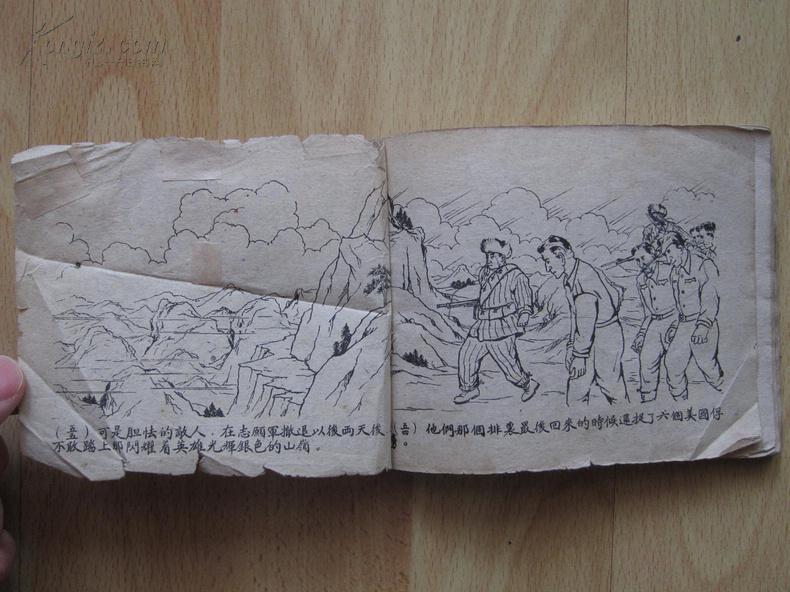 (五)可是胆怯的敵人,在志願軍撤退以後兩天後
不敢踏上那閃耀着英雄光輝銀色的山嶺。
他們那個排裏最後回來的時候還捉了六個美國俘
虜。